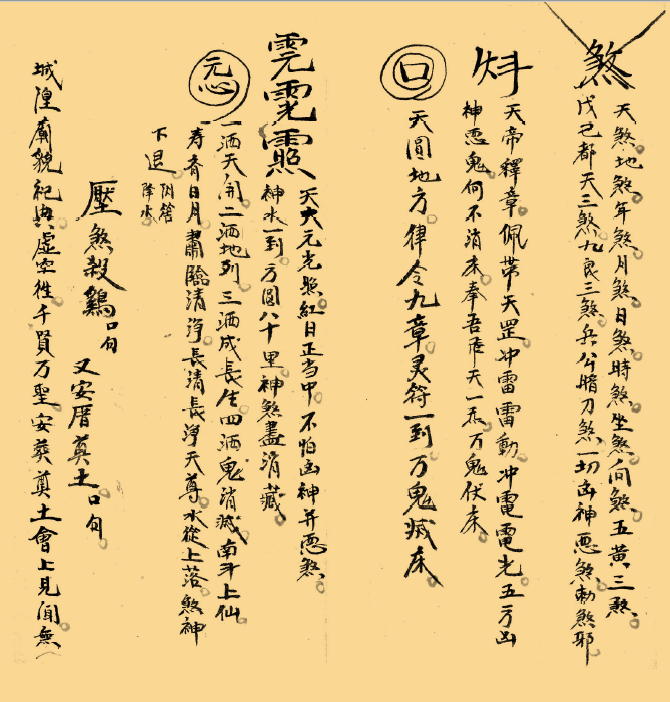 煞
天煞地煞年煞月煞日煞時煞坐煞向煞五黃三煞
戊己都天三煞九良三煞兵公暗刀煞一切凶神惡煞勅煞耶
炓
天帝釋章佩帶天罡冲雷雷動冲電電光五方凶
神惡鬼何不消未奉吾 天一 万鬼伏床
回
天圓地方律令九章灵符一到万鬼滅床
天大元光照紅日正当中不怕凶神并惡煞
神水一到方圓八十里神煞盡消藏
一洒天開二洒地列三洒成長生四洒鬼消滅南斗上仙
寿齐日月肅臨清淨長清長淨天尊水從上落煞神
下退
降水
壓煞殺鷄口句
又安厝奠土口句
城湟廟貌祀典虛空徃千賢万聖安葬奠土會上見闻無